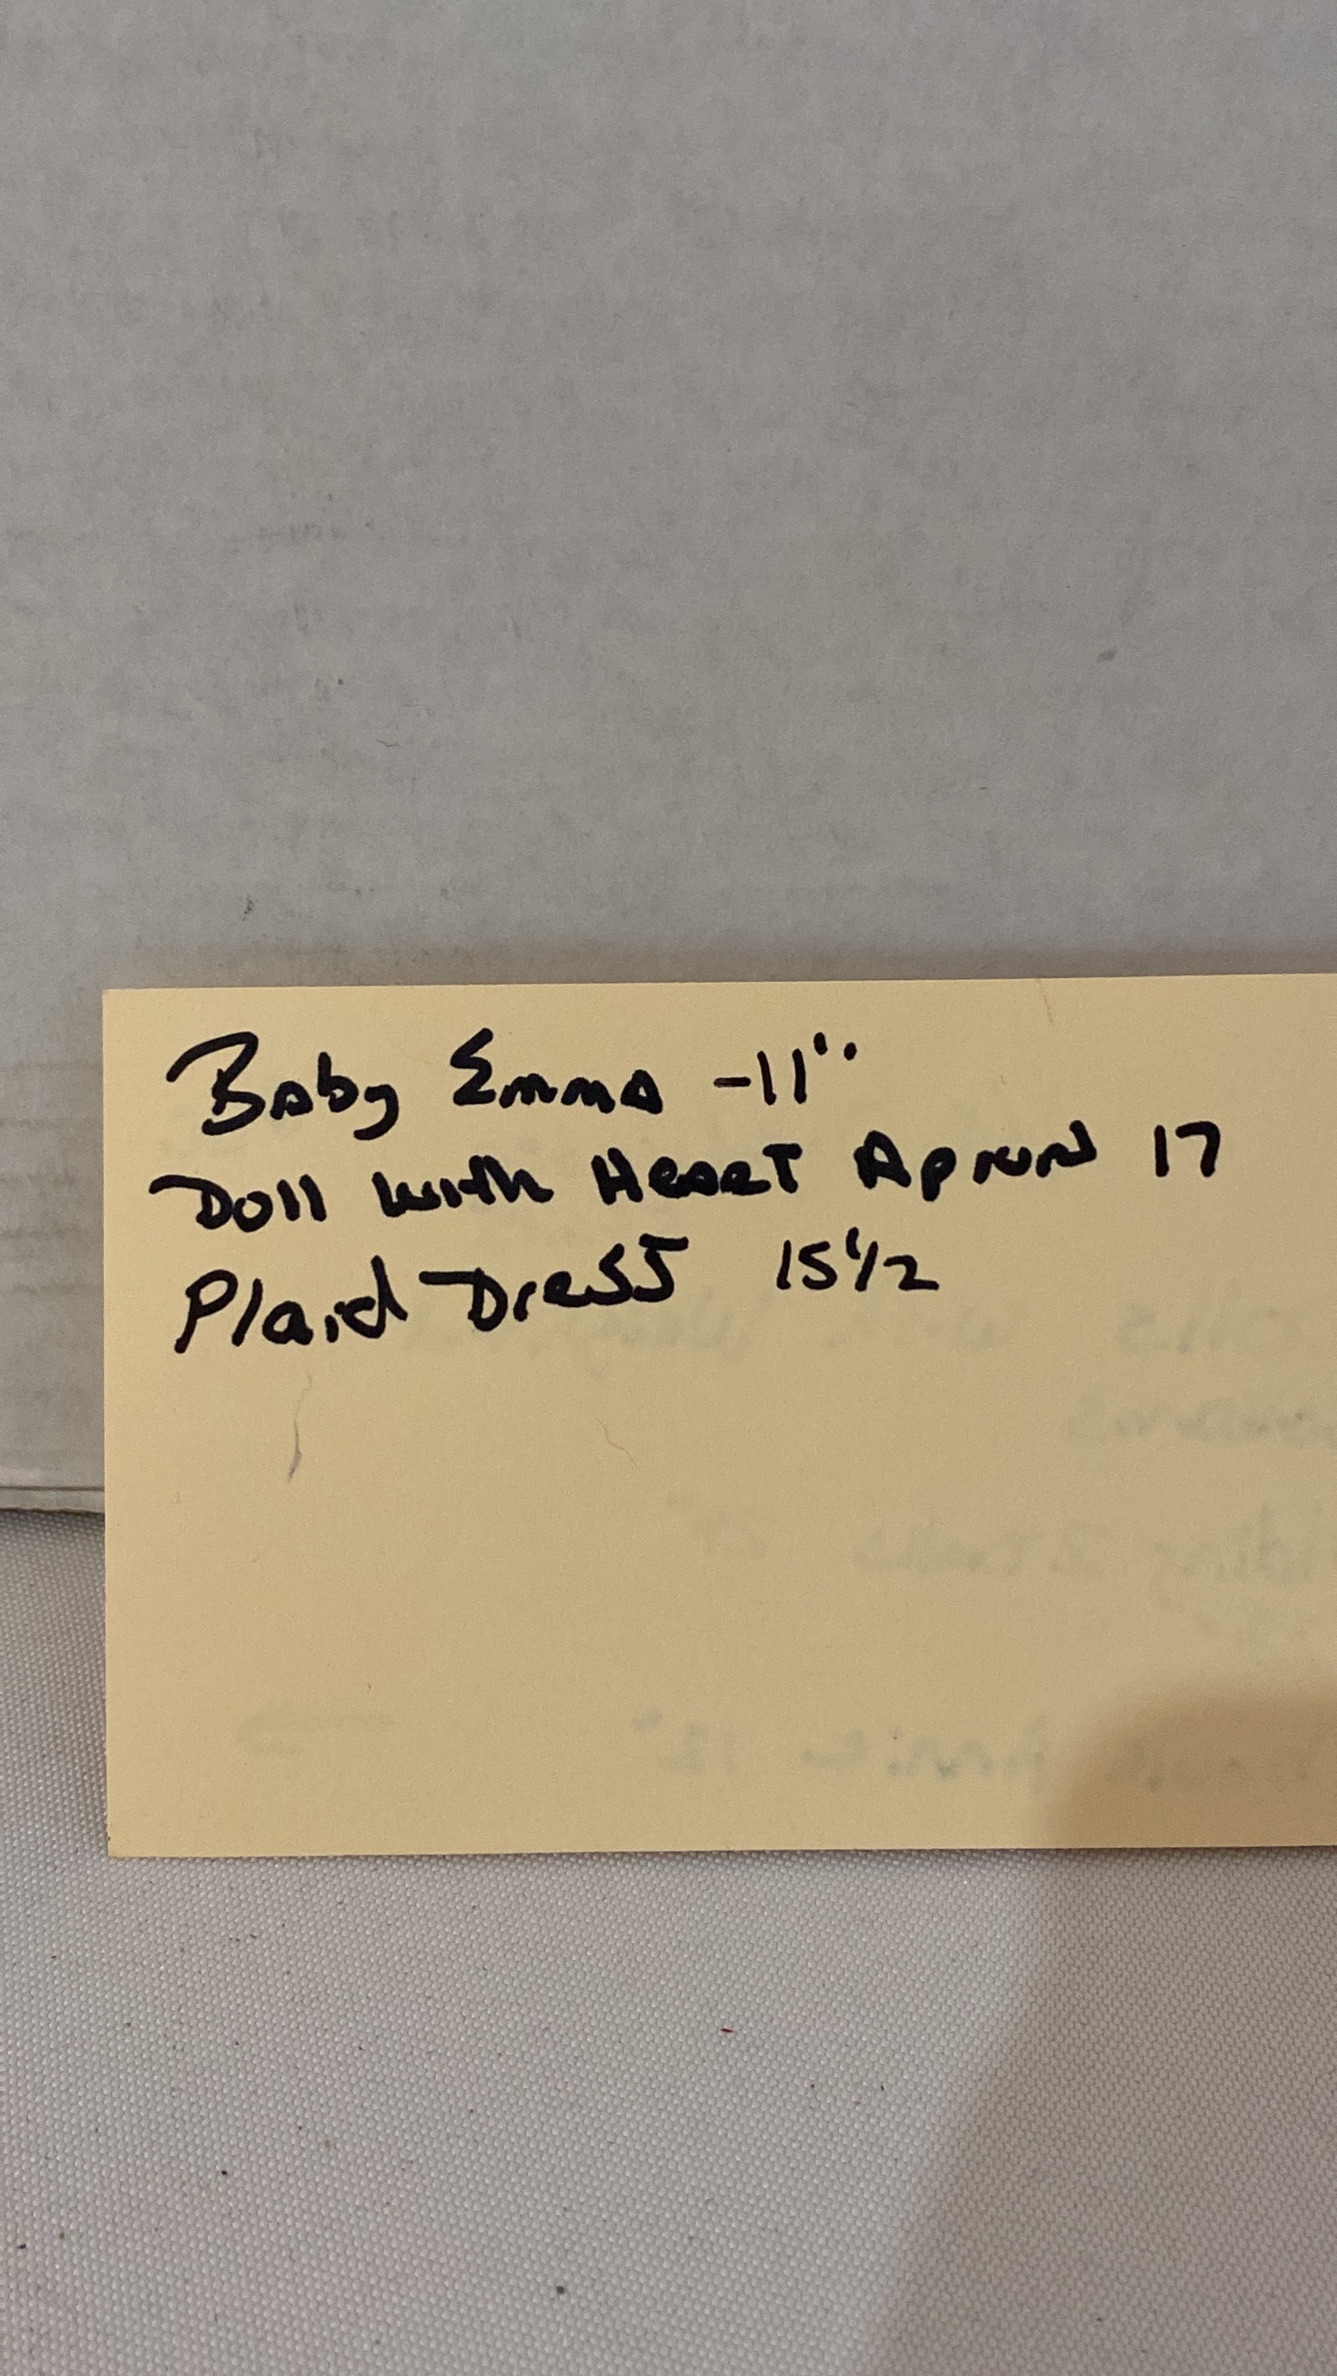 Baby Emma -11"
Doll with Heart Apron 17
Plaid Dress 15 1/2